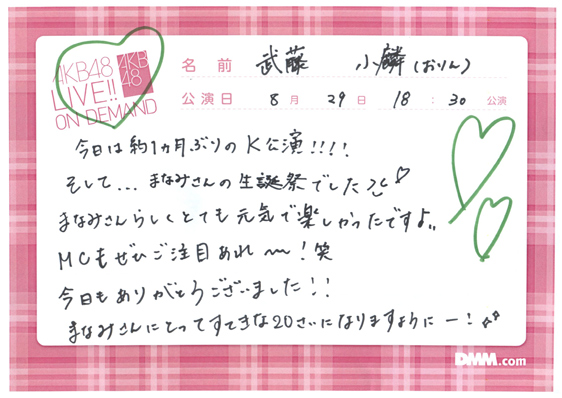 AKB48
LIVE!!
ON DEMAND
AKB
48
名前 武藤 小麟(おりん)
公演日 8月29日 18:30 公演
今日は約1ヵ月ぶりのK公演!!!!
そして...まなみさんの生誕祭でした♡
まなみさんらしくとても元気で楽しかったですよ。。
MCもぜひご注目あれ〜!笑
今日もありがとうございました!!
まなみさんにとってすてきな20さいになりますようにー!
DMM.com